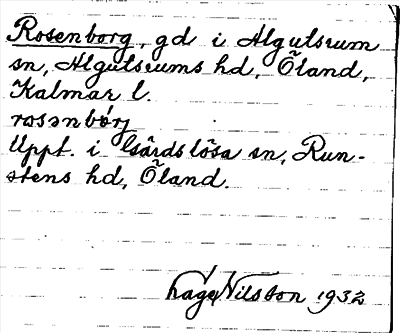 Rosenborg, gd i Algutsrum
sn, Algutsrums hd, Öland,
Kalmar l.
rosənbórj
Uppt. i Gårdslösa sn, Run-
stens hd, Öland.
Håge Nilsson 1932